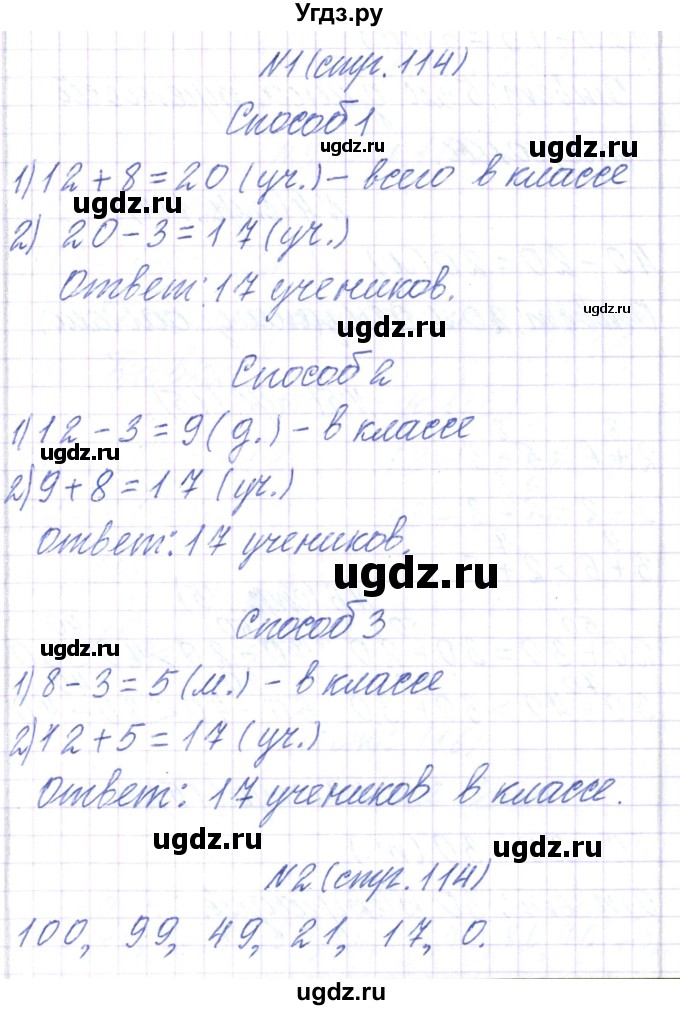 Угдз.ру
N1 (стр. 114)
Способ 1
ugdz.ru
ugdz.ru
1) 12 + 8 = 20 (уч.) – всего в классе
ugdz.ru
2) 20 – 3 = 17 (уч.)
Ответ: 17 учеников.
ugdz.ru
ugdz.ru
Способ 2
1) 12 – 3 = 9 (д.) – в классе
ugdz.ru
2) 9 + 8 = 17 (уч.)
Ответ: 17 учеников.
ugdz.ru
Способ 3
ugdz.ru
1) 8 – 3 = 5 (м.) – в классе
2) 12 + 5 = 17 (уч.)
Ответ: 17 учеников в классе.
ugdz.ru
ugdz.ru
N2 (стр. 114)
100, 99, 49, 21, 17, 0.
ugdz.ru